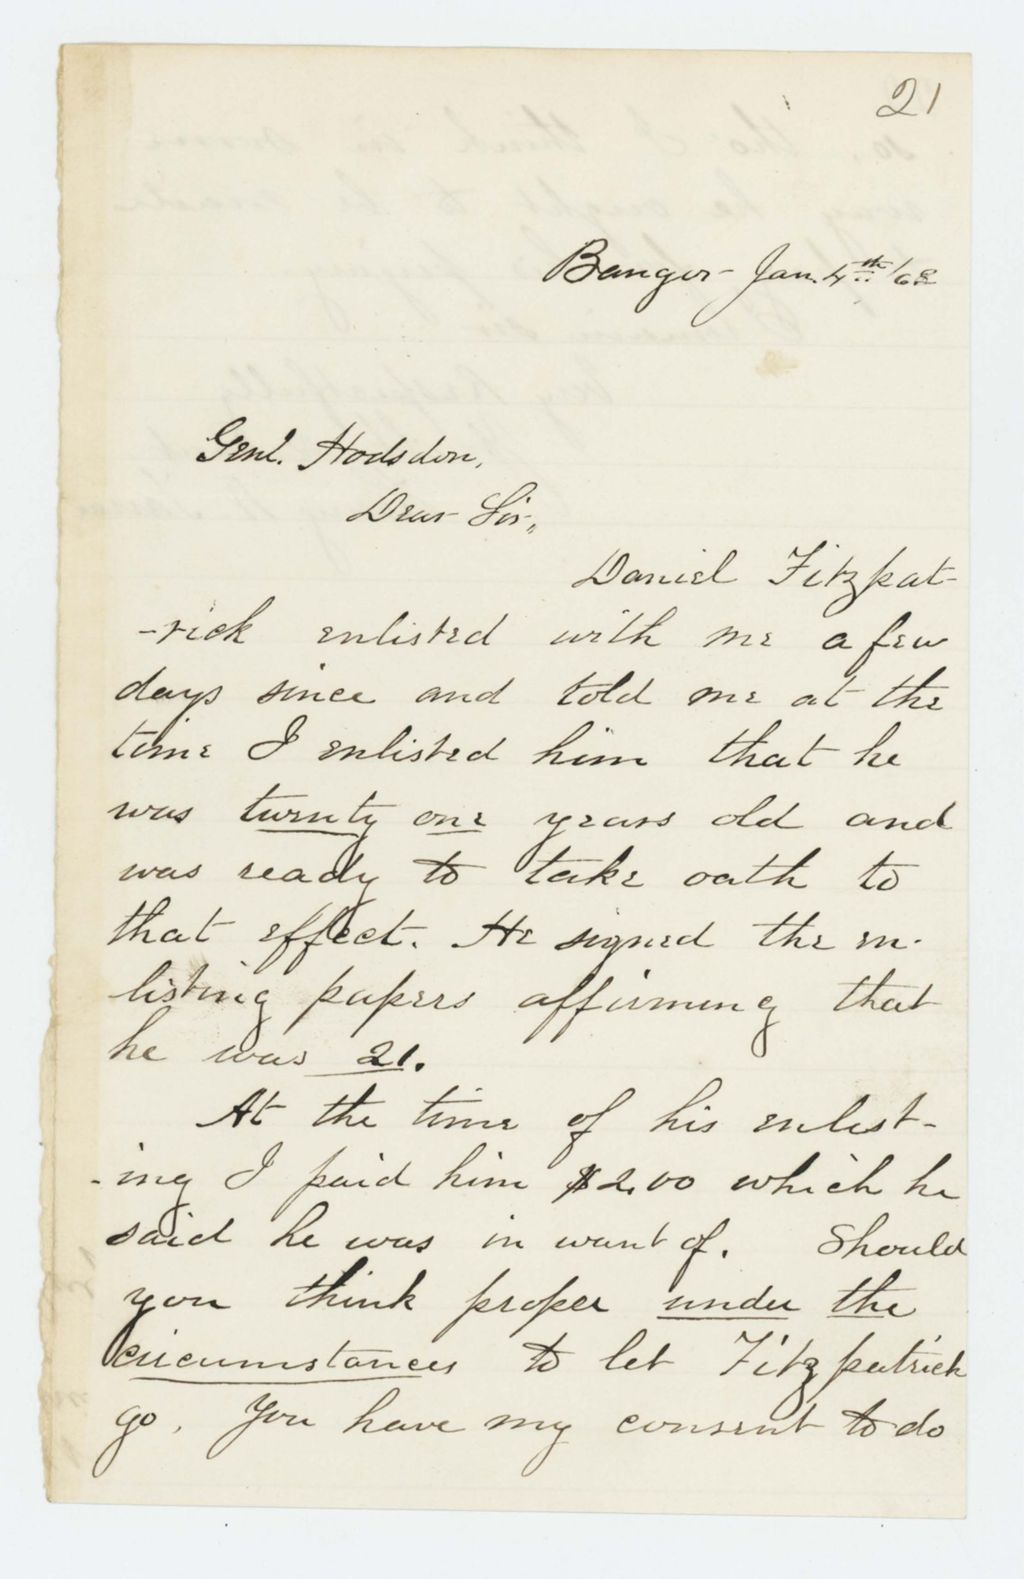 21
Bangor Jan. 4th /62
Genl. Hodsdon,
Dear Sir,,
Daniel Fitzpat-
-rick enlisted with me a few
days since and told me at the
time I enlisted him that he
was twenty one years old and
was ready to take oath to
that effect. He signed the en-
listing papers affirming that
he was 21.
At the time of his enlist-
-ing I paid him $2.00 which he
said he was in want of. Should
you think proper under the
circumstances to let Fitzpatrick
go. You have my consent to do